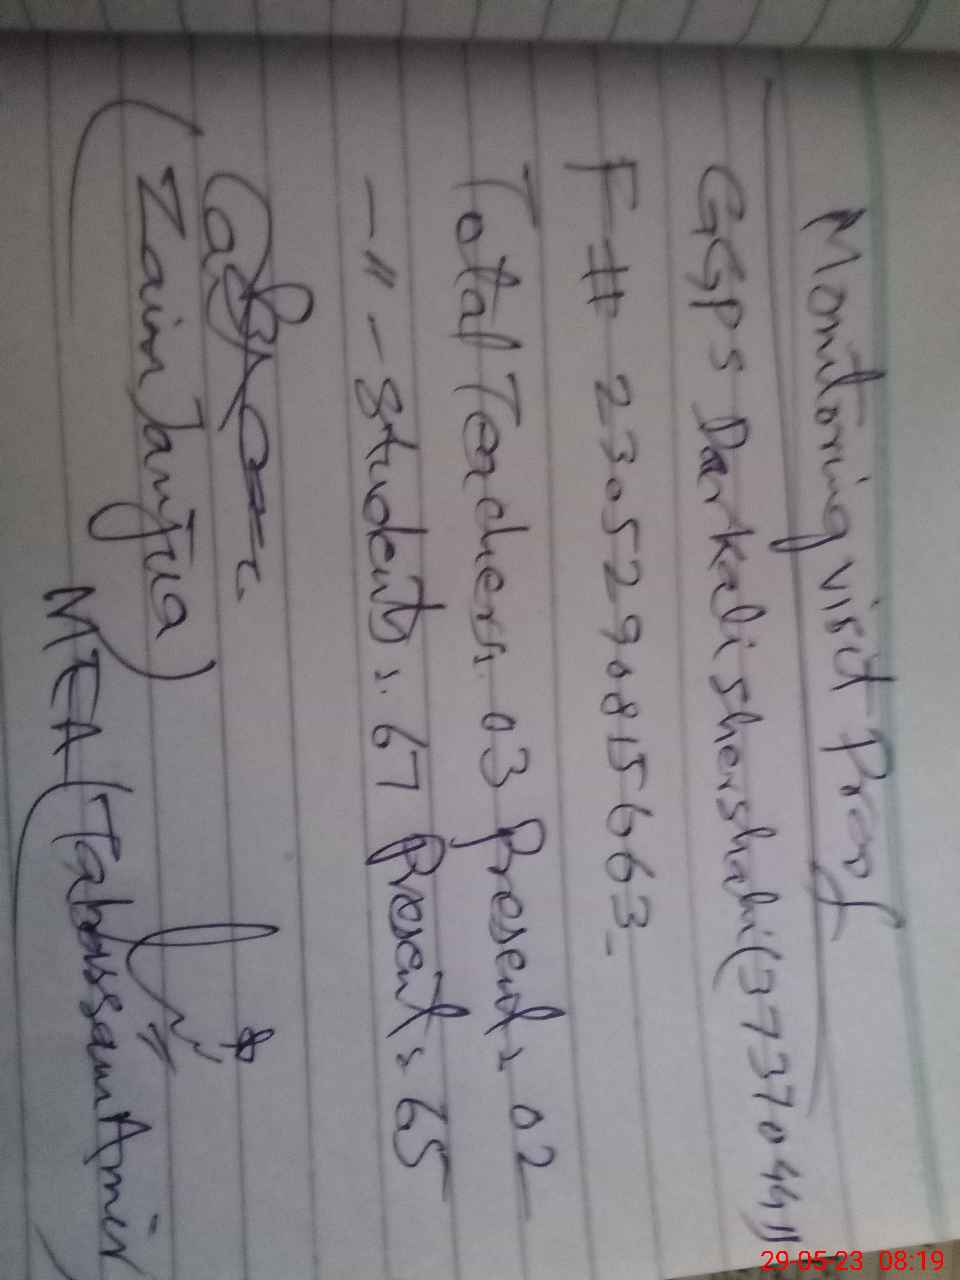 Monitoring visit Proof
GGPS Darkali shershahi (37370411
F# 2305290815663.
Total Teachers: 03 Present: 02
-"- Students: 67 Present: 65
(Zain Janjua)
MEA (Tabassam Amir
29-05-23 08:19